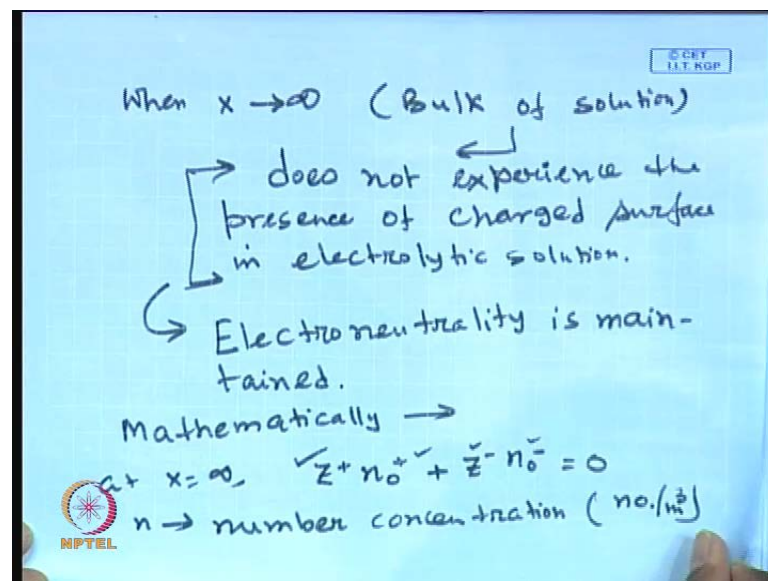 © CET
I.I.T. KGP
When x → ∞ (Bulk of solution)
does not experience the
presence of charged surface
in electrolytic solution.
Electroneutrality is main-
tained.
Mathematically →
at x = ∞, z⁺ n₀⁺ + z⁻ n₀⁻ = 0
n → number concentration (no./m³)
NPTEL